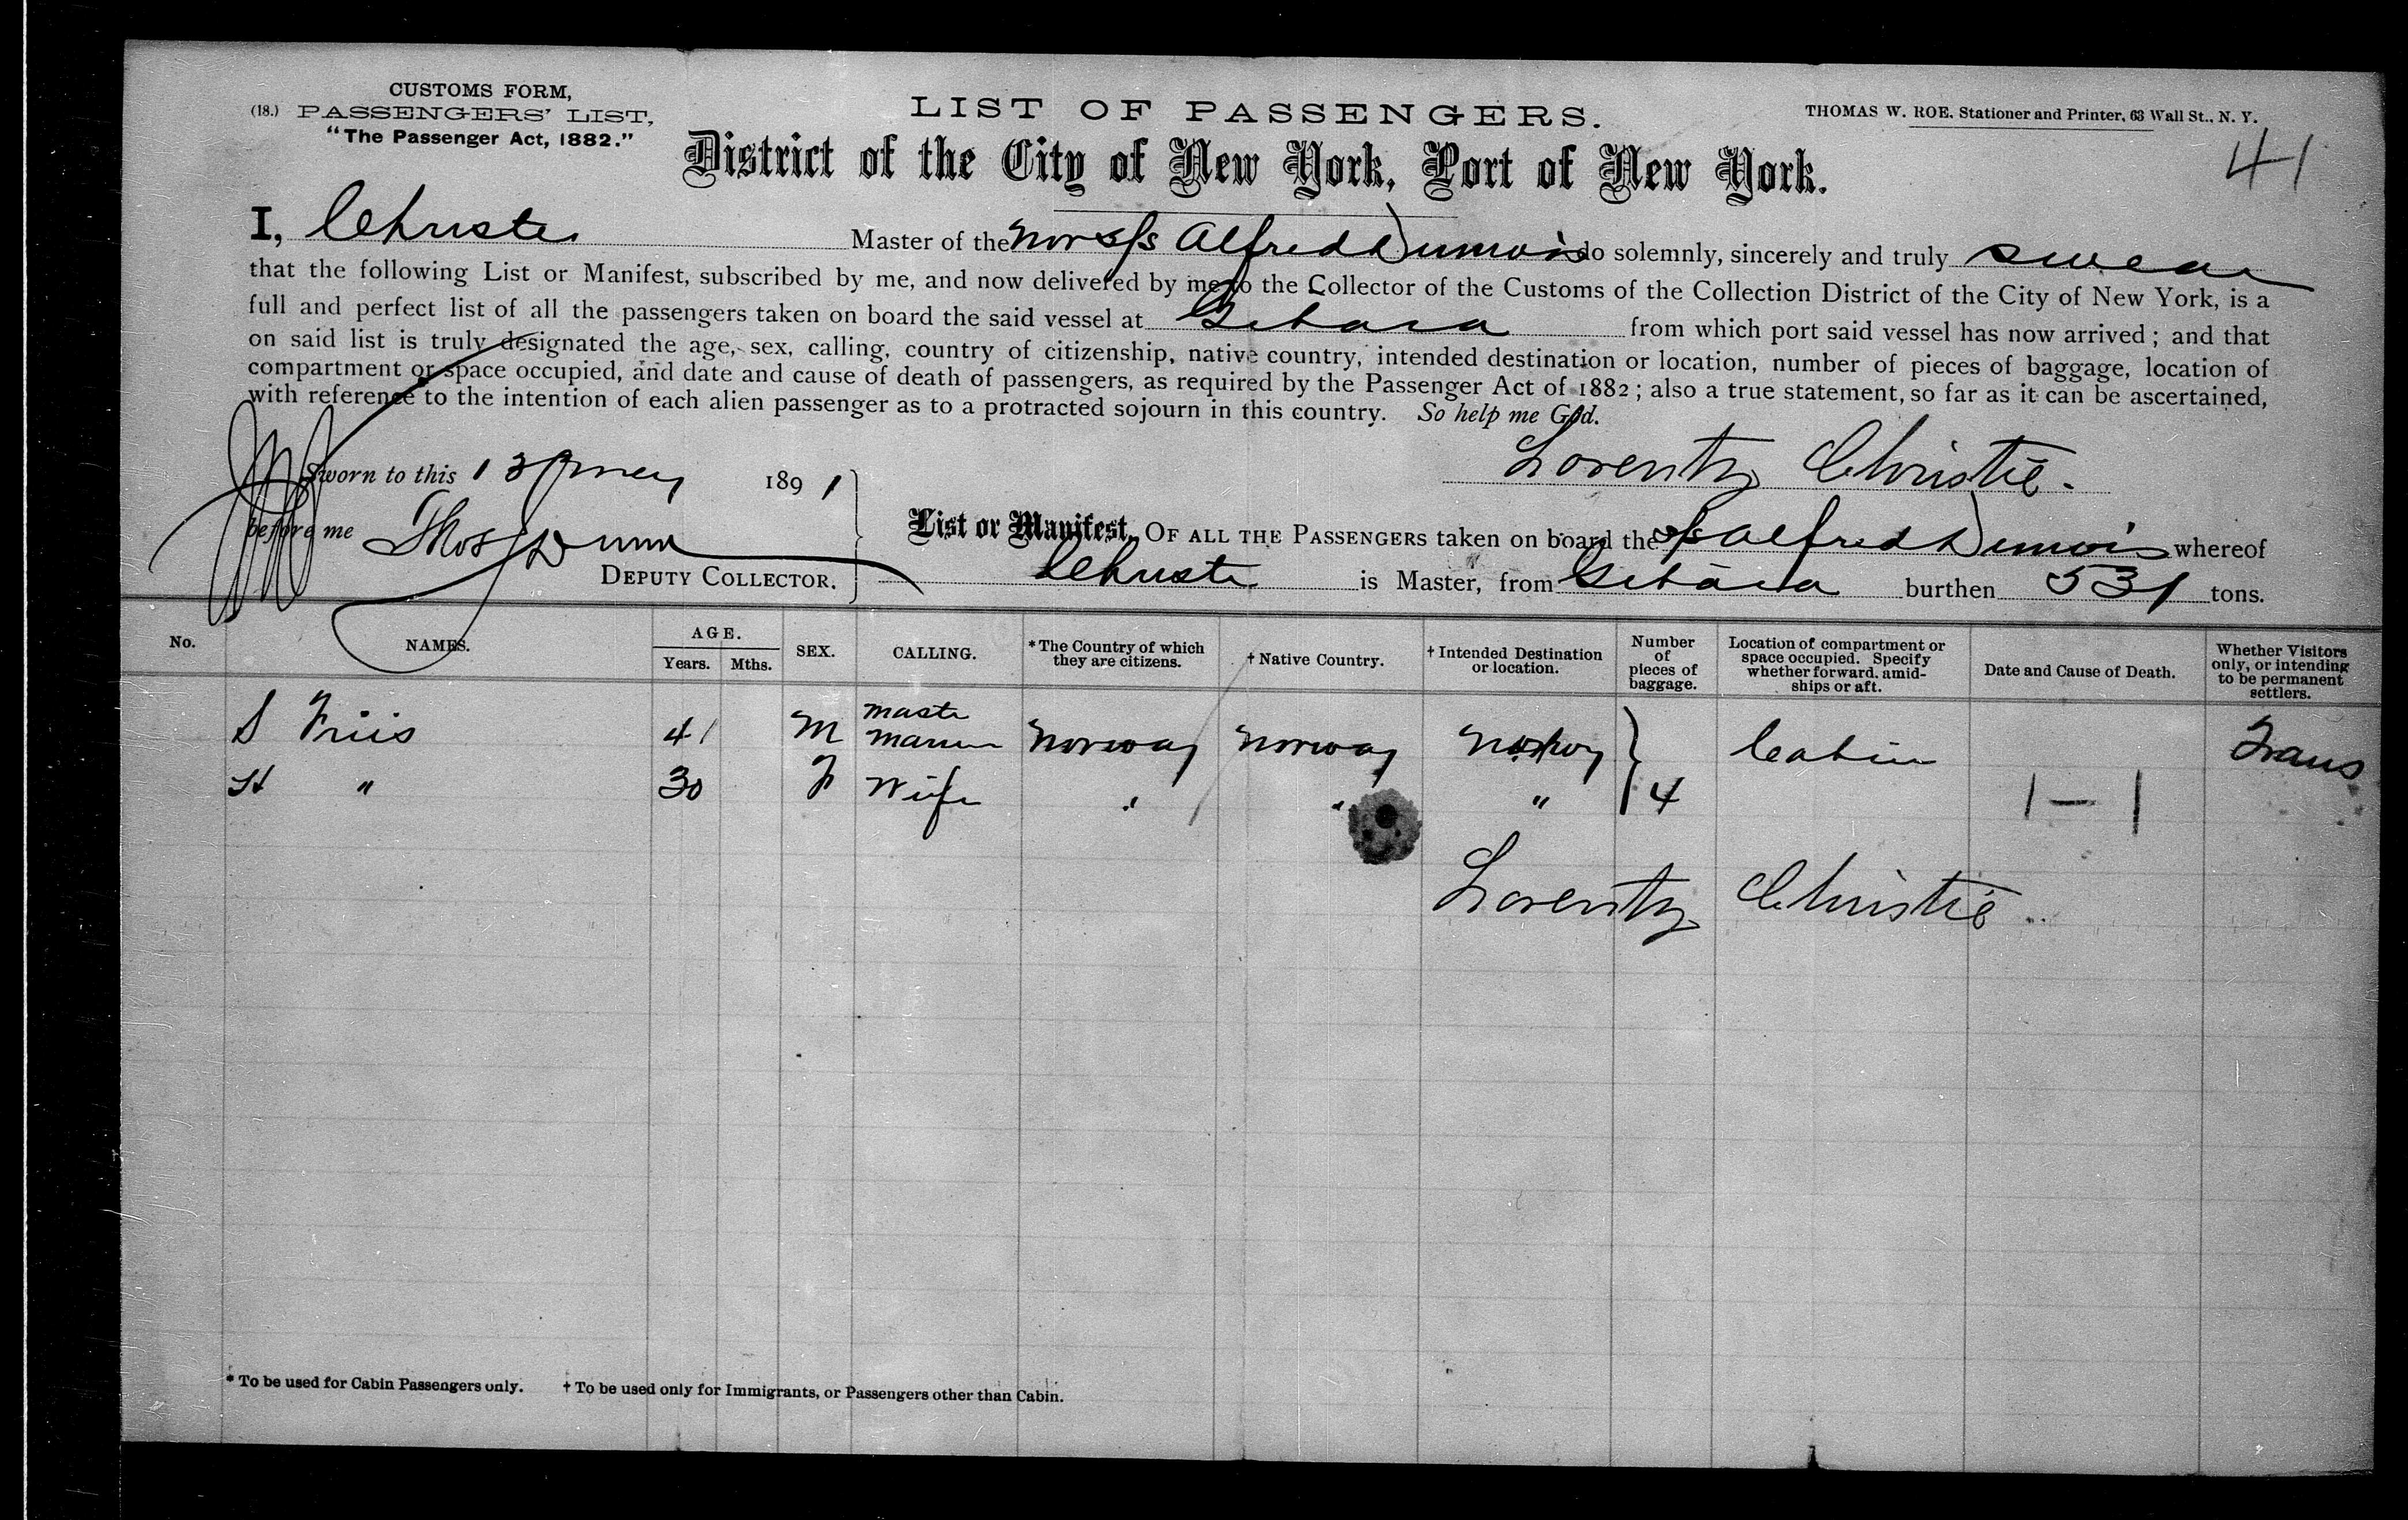 CUSTOMS FORM,
(18.) PASSENGERS' LIST,
"The Passenger Act, 1882."
LIST OF PASSENGERS.
THOMAS W. ROE, Stationer and Printer, 63 Wall St., N. Y.
41
District of the City of New York, Port of New York.
I, Christe Master of the Nor S/s Alfred Dumois do solemnly, sincerely and truly swear
that the following List or Manifest, subscribed by me, and now delivered by me to the Collector of the Customs of the Collection District of the City of New York, is a
full and perfect list of all the passengers taken on board the said vessel at Gibara from which port said vessel has now arrived; and that
on said list is truly designated the age, sex, calling, country of citizenship, native country, intended destination or location, number of pieces of baggage, location of
compartment or space occupied, and date and cause of death of passengers, as required by the Passenger Act of 1882; also a true statement, so far as it can be ascertained,
with reference to the intention of each alien passenger as to a protracted sojourn in this country. So help me God.
Lorentz Christie.
Sworn to this 13 May 1891
before me Thos Dunn
DEPUTY COLLECTOR.
List or Manifest, OF ALL THE PASSENGERS taken on board the S/s Alfred Dumois whereof
Christe is Master, from Gibara burthen 531 tons.
No. NAMES. AGE. Years. Mths. SEX. CALLING. *The Country of which they are citizens. †Native Country. †Intended Destination or location. Number of pieces of baggage. Location of compartment or space occupied. Specify whether forward, amidships or aft. Date and Cause of Death. Whether Visitors only, or intending to be permanent settlers.
S Friis 41 M Master Mariner Norway Norway Norway Cabin Trans
H " 30 F Wife " " " 4 1—1
Lorentz Christie
* To be used for Cabin Passengers only. † To be used only for Immigrants, or Passengers other than Cabin.